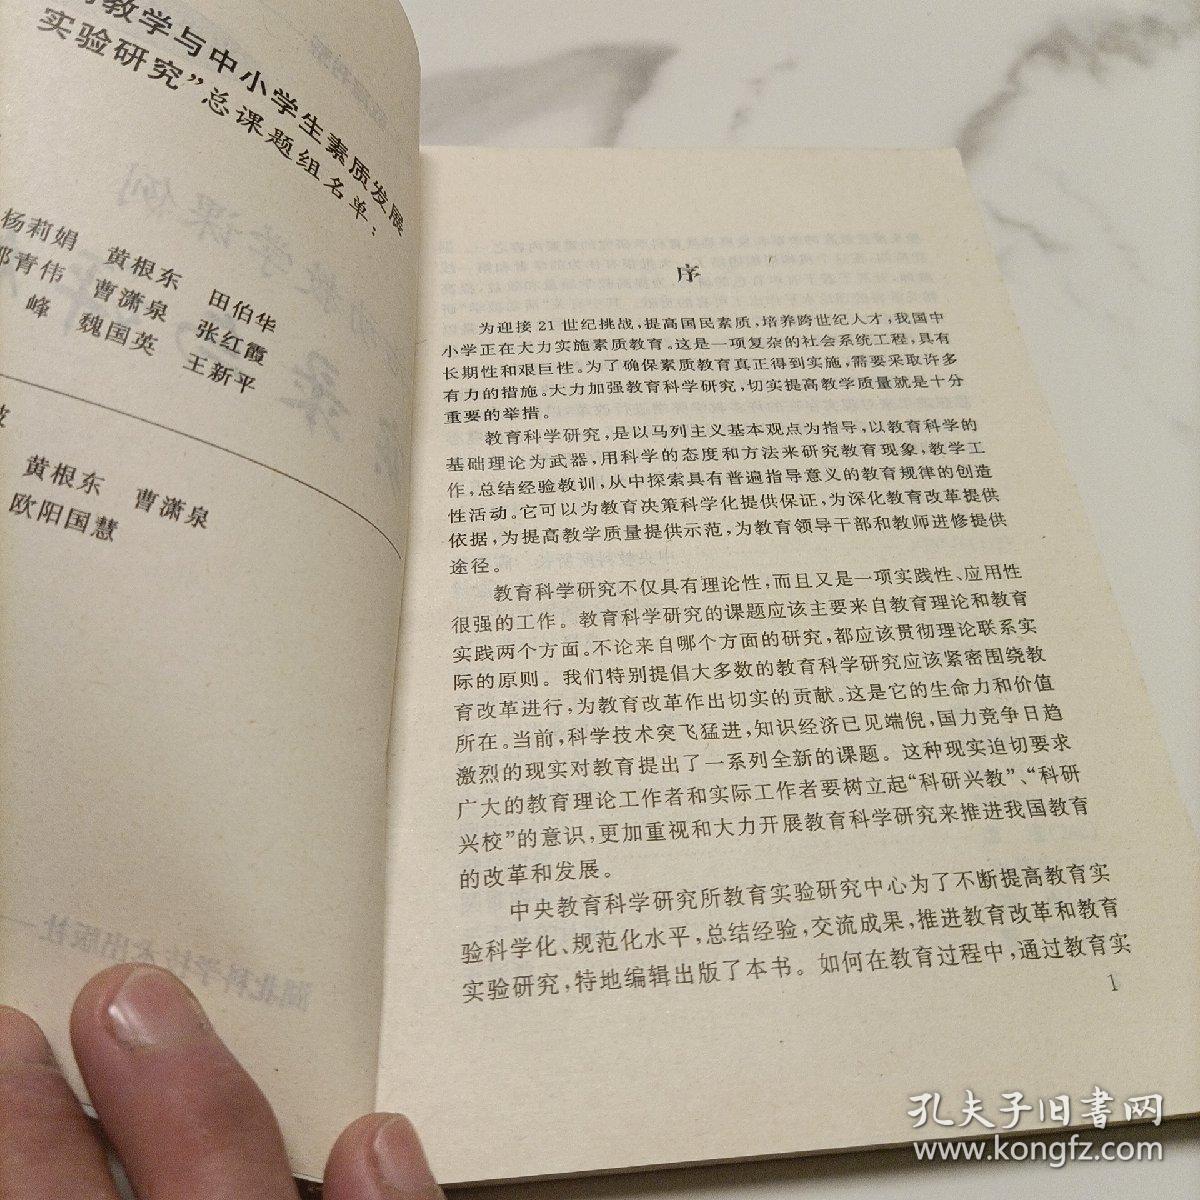 教学与中小学生素质发展
实验研究”总课题组名单：
杨莉娟 黄根东 田伯华
青伟 曹潇泉 张红霞
峰 魏国英 王新平
黄根东 曹潇泉
欧阳国慧
序
为迎接21世纪挑战，提高国民素质，培养跨世纪人才，我国中
小学正在大力实施素质教育。这是一项复杂的社会系统工程，具有
长期性和艰巨性。为了确保素质教育真正得到实施，需要采取许多
有力的措施。大力加强教育科学研究，切实提高教学质量就是十分
重要的举措。
教育科学研究，是以马列主义基本观点为指导，以教育科学的
基础理论为武器，用科学的态度和方法来研究教育现象，教学工
作，总结经验教训，从中探索具有普遍指导意义的教育规律的创造
性活动。它可以为教育决策科学化提供保证，为深化教育改革提供
依据，为提高教学质量提供示范，为教育领导干部和教师进修提供
途径。
教育科学研究不仅具有理论性，而且又是一项实践性、应用性
很强的工作。教育科学研究的课题应该主要来自教育理论和教育
实践两个方面。不论来自哪个方面的研究，都应该贯彻理论联系实
际的原则。我们特别提倡大多数的教育科学研究应该紧密围绕教
育改革进行，为教育改革作出切实的贡献。这是它的生命力和价值
所在。当前，科学技术突飞猛进，知识经济已见端倪，国力竞争日趋
激烈的现实对教育提出了一系列全新的课题。这种现实迫切要求
广大的教育理论工作者和实际工作者要树立起“科研兴教”、“科研
兴校”的意识，更加重视和大力开展教育科学研究来推进我国教育
的改革和发展。
中央教育科学研究所教育实验研究中心为了不断提高教育实
验科学化、规范化水平，总结经验，交流成果，推进教育改革和教育
实验研究，特地编辑出版了本书。如何在教育过程中，通过教育实
1
孔夫子旧书网
www.kongfz.com